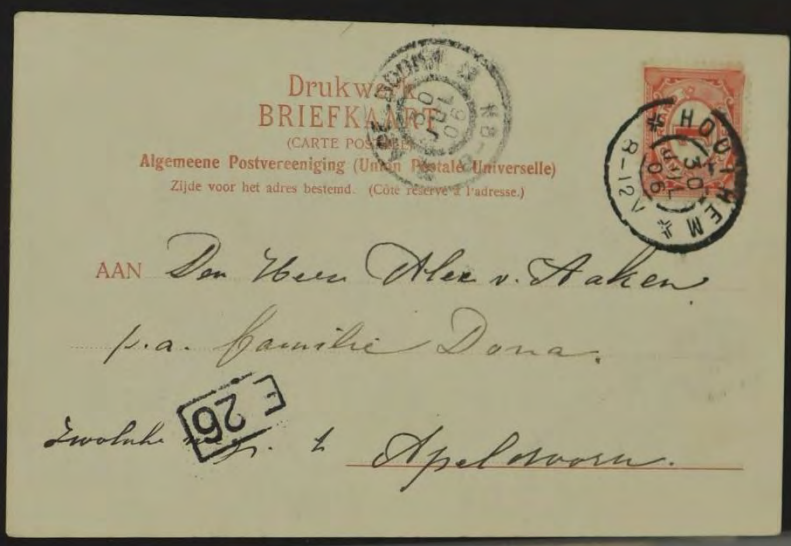 Drukwerk
BRIEFKAART
(CARTE POSTALE)
Algemeene Postvereeniging (Union Postale Universelle)
Zijde voor het adres bestemd. (Côté réservé à l'adresse.)
HOUTHEM
30 JUL 06
8-12V
AAN Den Heer Alex v. Aaken
p.a. Familie Dona.
E 26
t Apeldoorn.